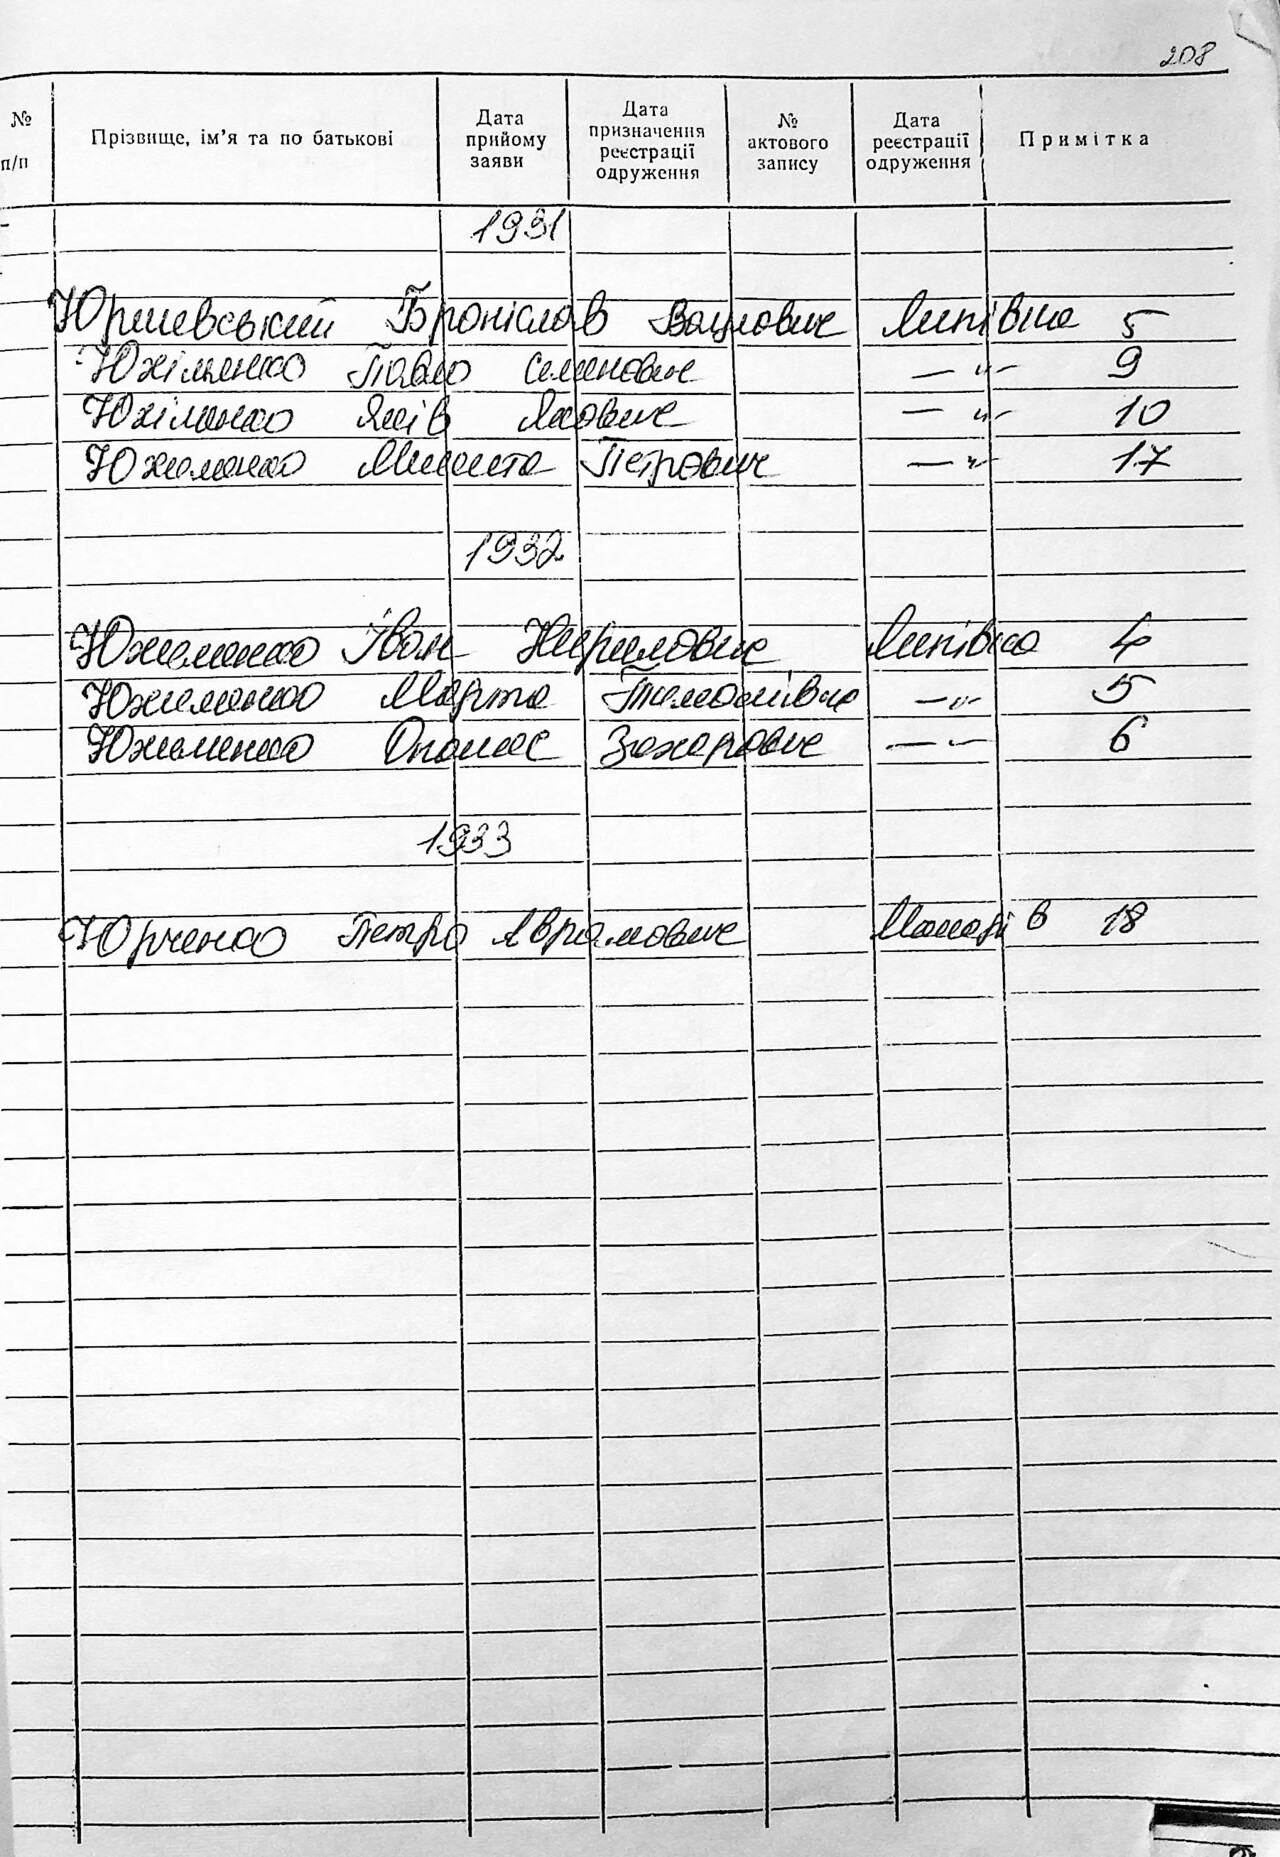 208
№ п/п Прізвище, ім’я та по батькові Дата прийому заяви Дата призначення реєстрації одруження № актового запису Дата реєстрації одруження Примітка
1931
Юршевський Броніслав Вацлович Липівка 5
Юхіменко Павло Семенович — " — 9
Юхіменко Яків Якович — " — 10
Юхименко Микита Петрович — " — 17
1932
Юхименко Іван Кирилович Липівка 4
Юхименко Марта Тимошівна — " — 5
Юхименко Опанас Захарович — " — 6
1933
Юрченко Петро Аврамович Макарів 18